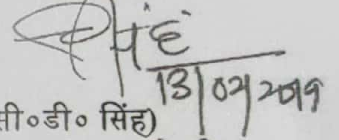 सिंह
13/02/2019
सी०डी० सिंह)